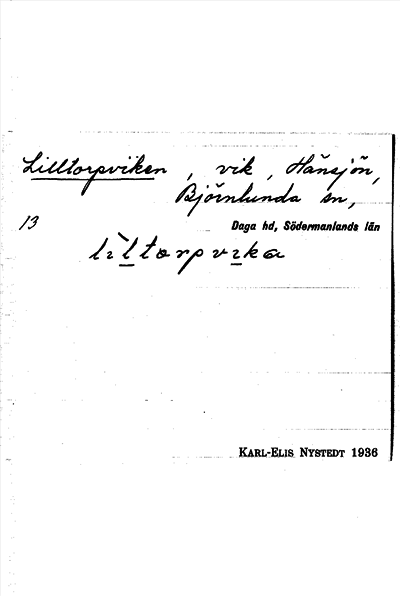 Lilltorpviken, vik, Hånsjön,
Björnlunda sn,
13 Daga hd, Södermanlands län
KARL-ELIS NYSTEDT 1936